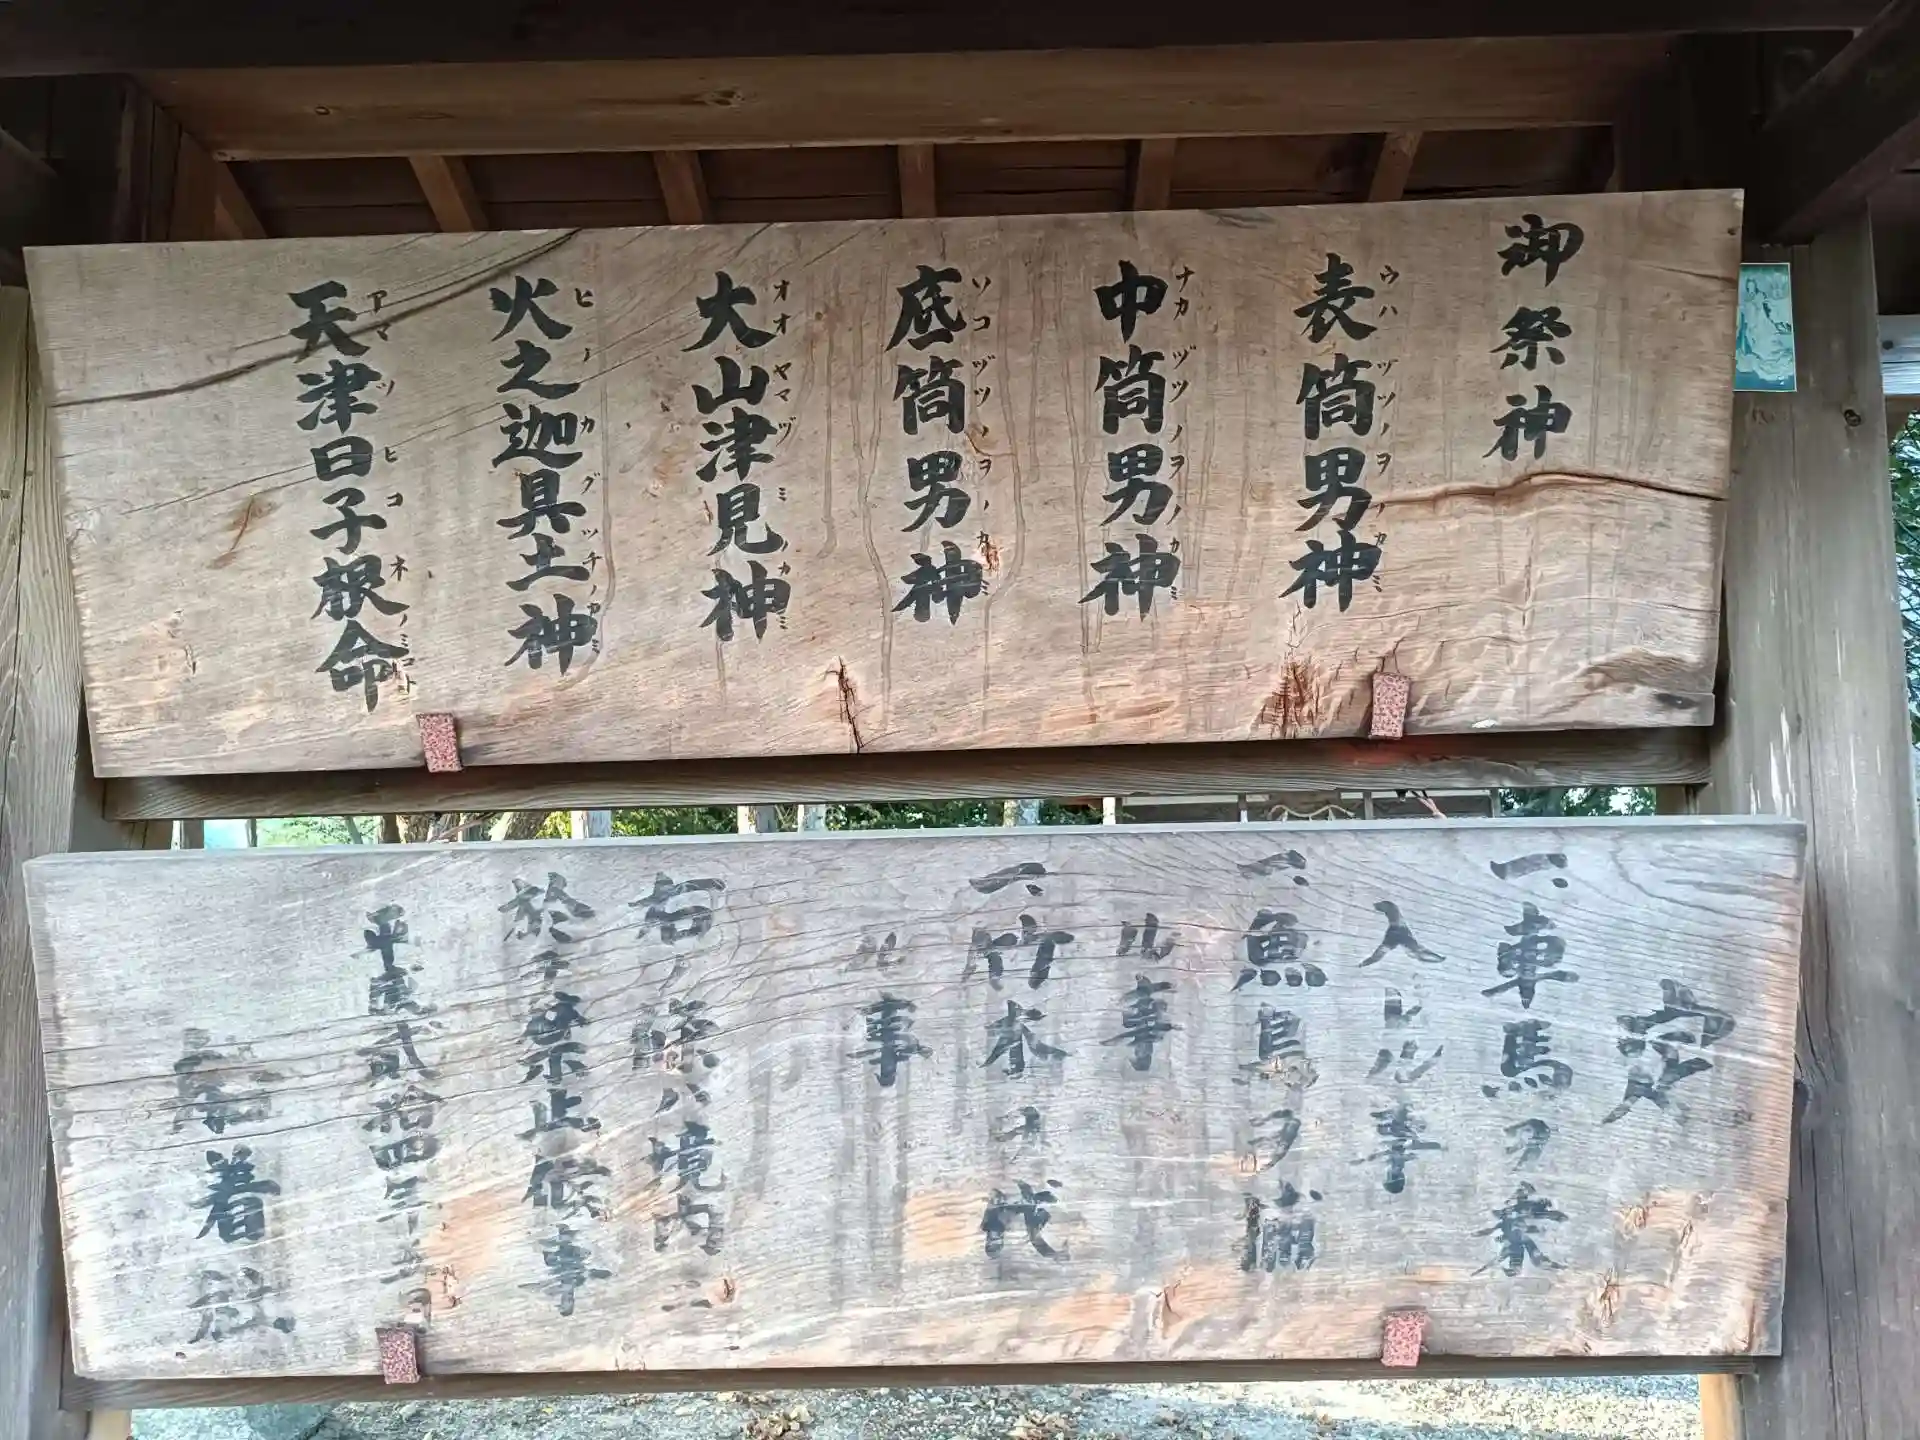 御祭神
表筒男神
ウハヅツノヲノカミ
中筒男神
ナカヅツノヲノカミ
底筒男神
ソコヅツノヲノカミ
大山津見神
オオヤマヅミノカミ
火之迦具土神
ヒノカグツチノカミ
天津日子根命
アマツヒコネノミコト
定
一、車馬ヲ乗
入レル事
一、魚鳥ヲ捕
ル事
一、竹木ヲ伐
ル事
右ノ條ハ境内ニ
於テ禁止候事
平成貳拾四年五月
船着社